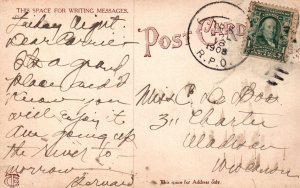 THIS SPACE FOR WRITING MESSAGES.
Friday Night
Dear Carrie
It's a grand
place and I
know you
will enjoy it
am going up
the River to
morrow
Post Card
1908
R.P.O.
Miss C. De Boos
311 Charter
Madison
Wisconsin
This space for Address only.